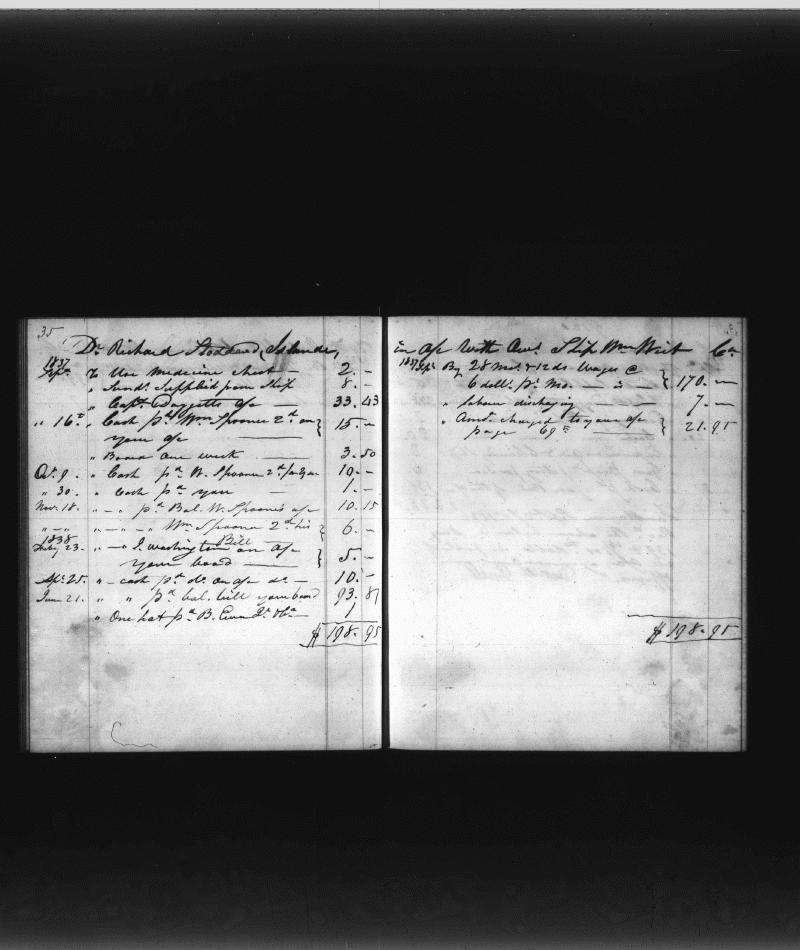 35
Dr. Richard Stoddard, Islander,
1837
Sept. To Use Medicine chest — 2. –
" Sund. Supplied from Ship 8. –
" Capt. Daggetts a/c 33. 43
" 16th " Cash pd. Wm Spooner 2d on } 15. –
your a/c
" Board one week 3. 50
Oct. 9. " Cash pd. W. Spooner 10. –
" 30. " Cash pd. you — 1. –
Nov. 18. " — " pd. Bal. W. Spooner's a/c 10. 15
" — " " — " — " Wm Spooner 2d his } 6. –
1838 Bill
23. " — " J. Washington on a/c } 5. –
your board
Apl. 25. " – cash pd. do. on a/c do – 10. –
June 21. " " pd. bal. bill your board 93. 87
" One hat pd. B. 1
$ 198. 95
in a/c With Ship Wm Cr.
1837 Sept. By 28 Mos. & 12 ds Wages @ } 170. —
6 doll. pr. Mo. — " —
" labour discharging — 7. —
" Amt. charged to your a/c } 21. 95
page 69
$ 198. 95